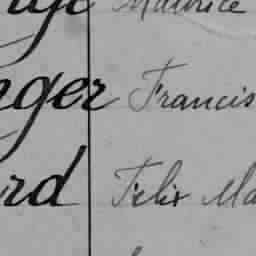 Maurice
nger Francis
rd Felix Ma